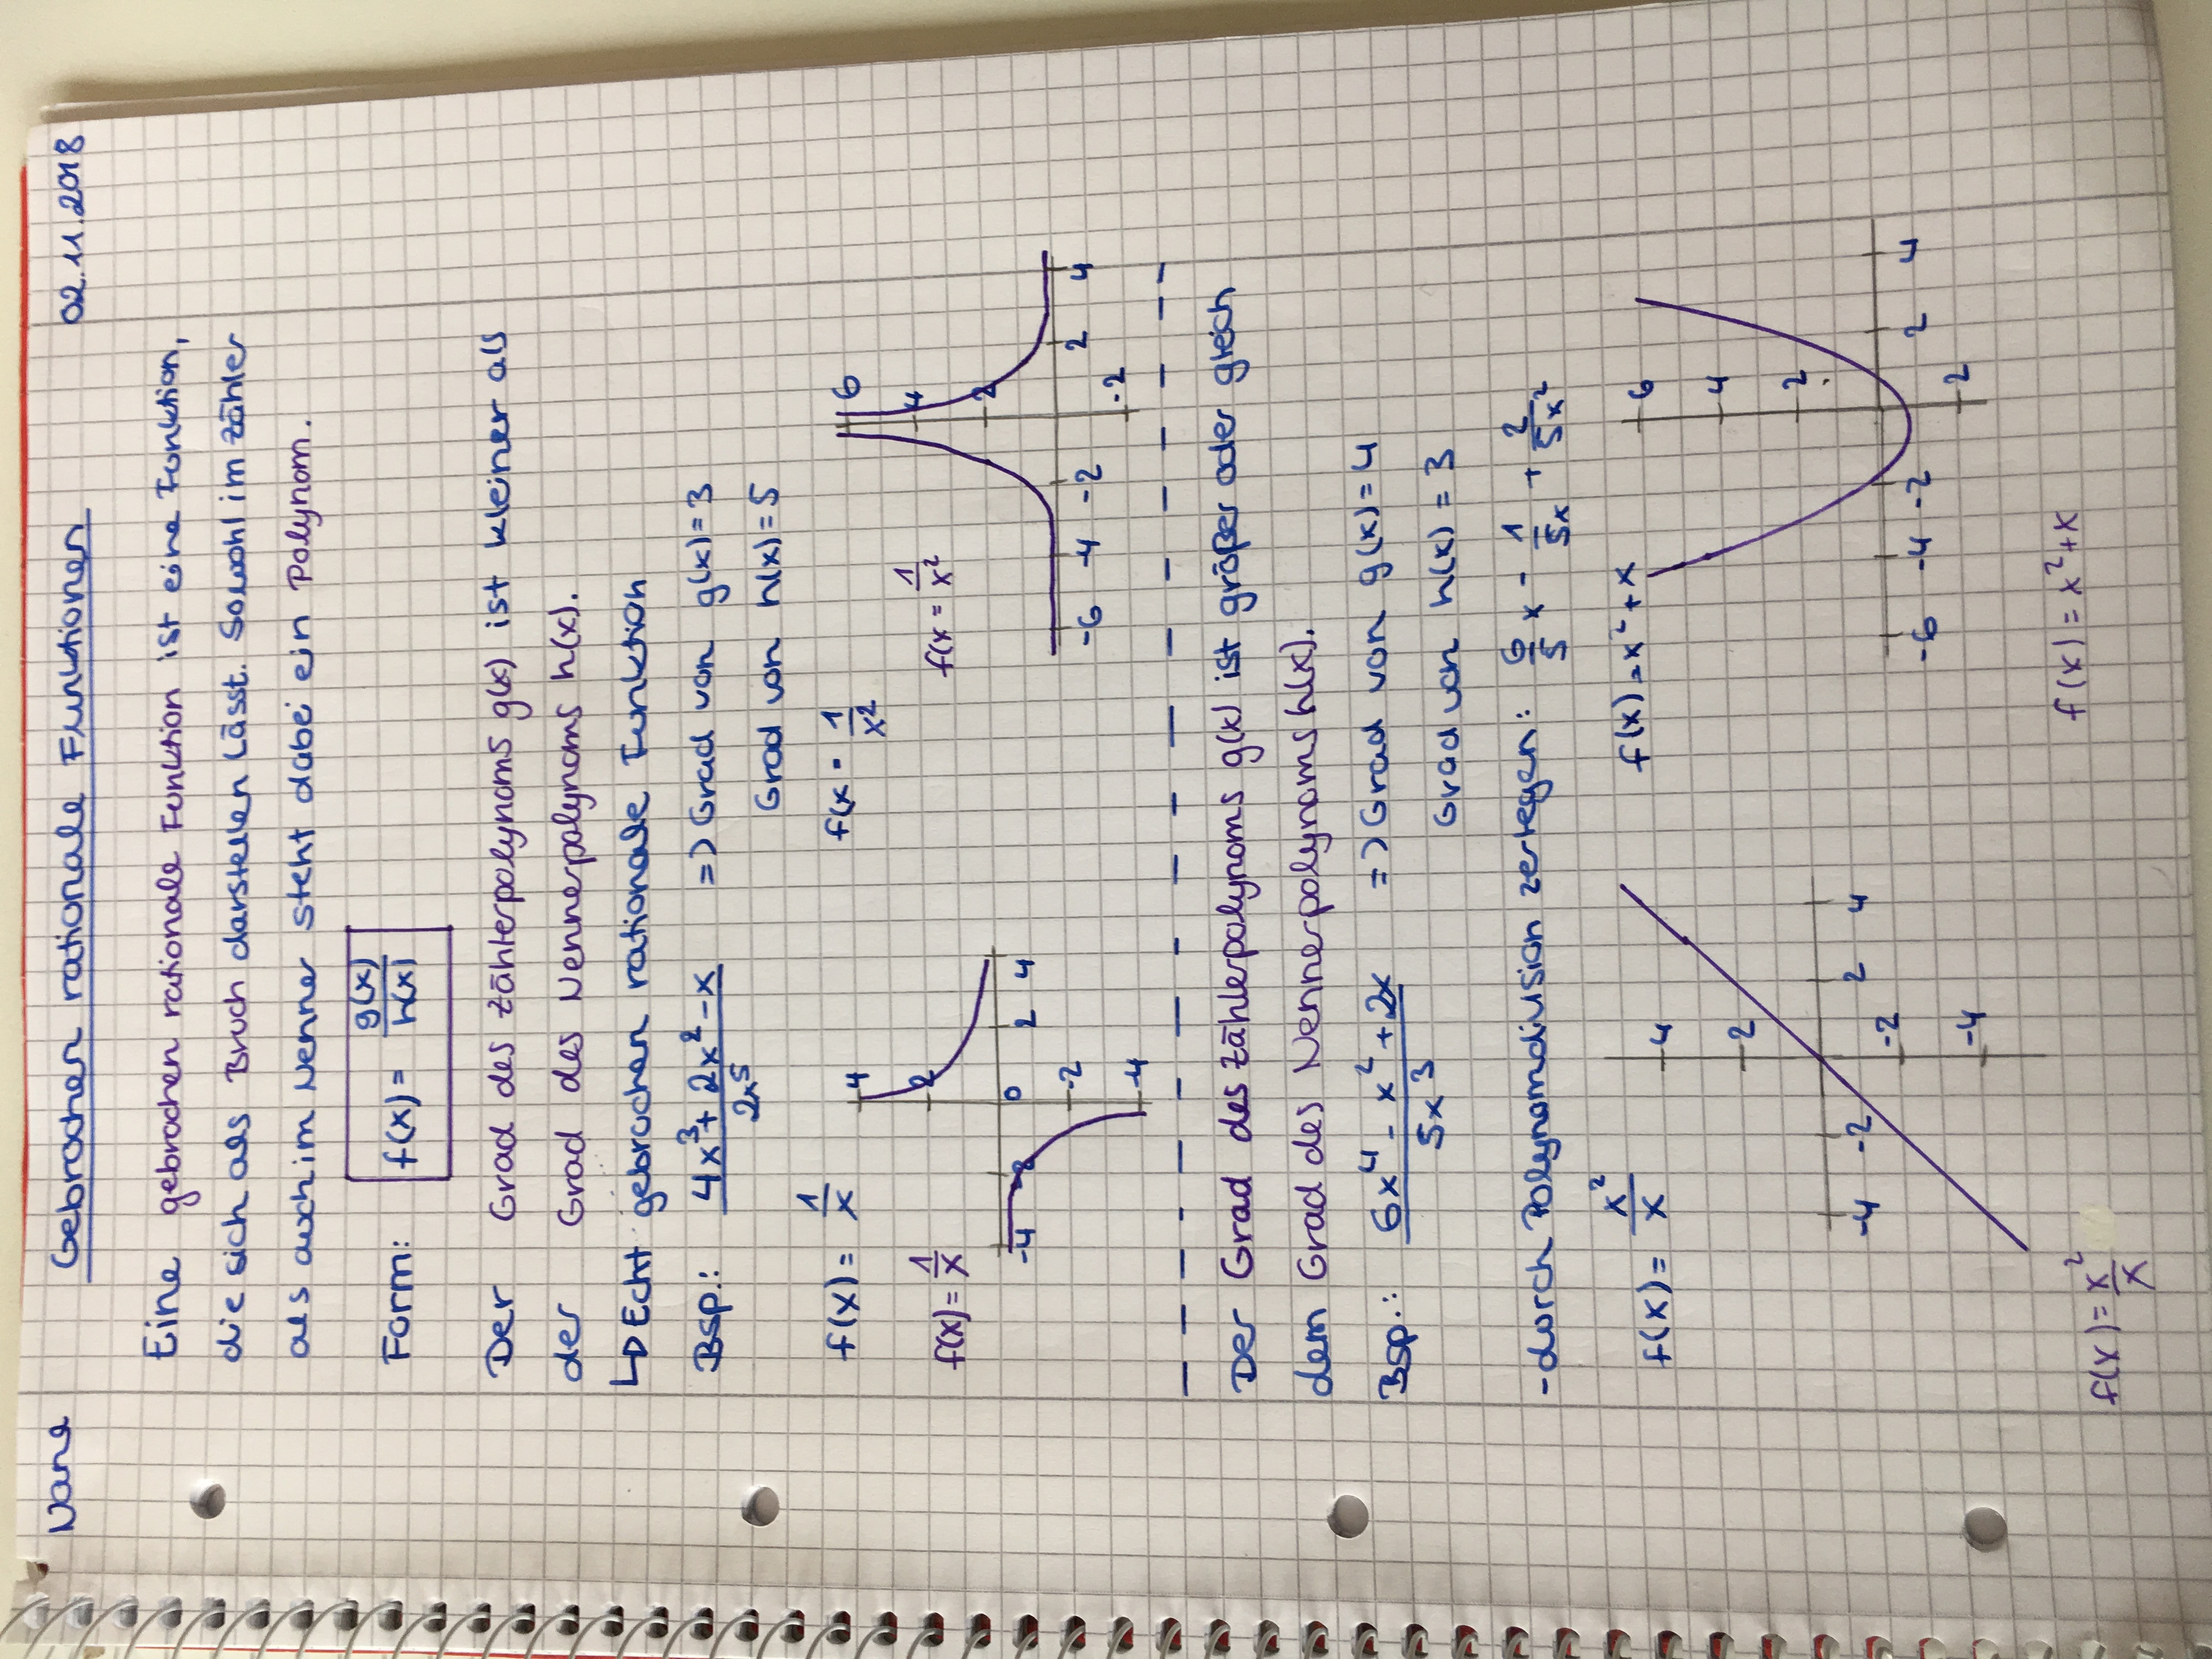 Name Gebrochen rationale Funktionen 02.11.2018
Eine gebrochen rationale Funktion ist eine Funktion,
die sich als Bruch darstellen lässt. Sowohl im Zähler
als auch im Nenner steht dabei ein Polynom.
Form: f(x) = g(x)/h(x)
Der Grad des Zählerpolynoms g(x) ist kleiner als
der Grad des Nennerpolynoms h(x).
↳ Echt gebrochen rationale Funktion
Bsp.: (4x³ + 2x² - x)/2x⁵ => Grad von g(x) = 3
Grad von h(x) = 5
f(x) = 1/x f(x = 1/x²
f(x) = 1/x f(x = 1/x²
4 2 0 -2 -4 -4 -2 2 4
6 4 2 -2 -6 -4 -2 2 4
Der Grad des Zählerpolynoms g(x) ist größer oder gleich
dem Grad des Nennerpolynoms h(x).
Bsp.: (6x⁴ - x² + 2x)/5x³ => Grad von g(x) = 4
Grad von h(x) = 3
- durch Polynomdivision zerlegen: 6/5 x - 1/5x + 2/5x²
f(x) = x²/x f(x) = x² + x
4 2 -2 -4 -4 -2 2 4
6 4 2 2 -6 -4 -2 2 4
f(x) = x²/x f(x) = x² + x